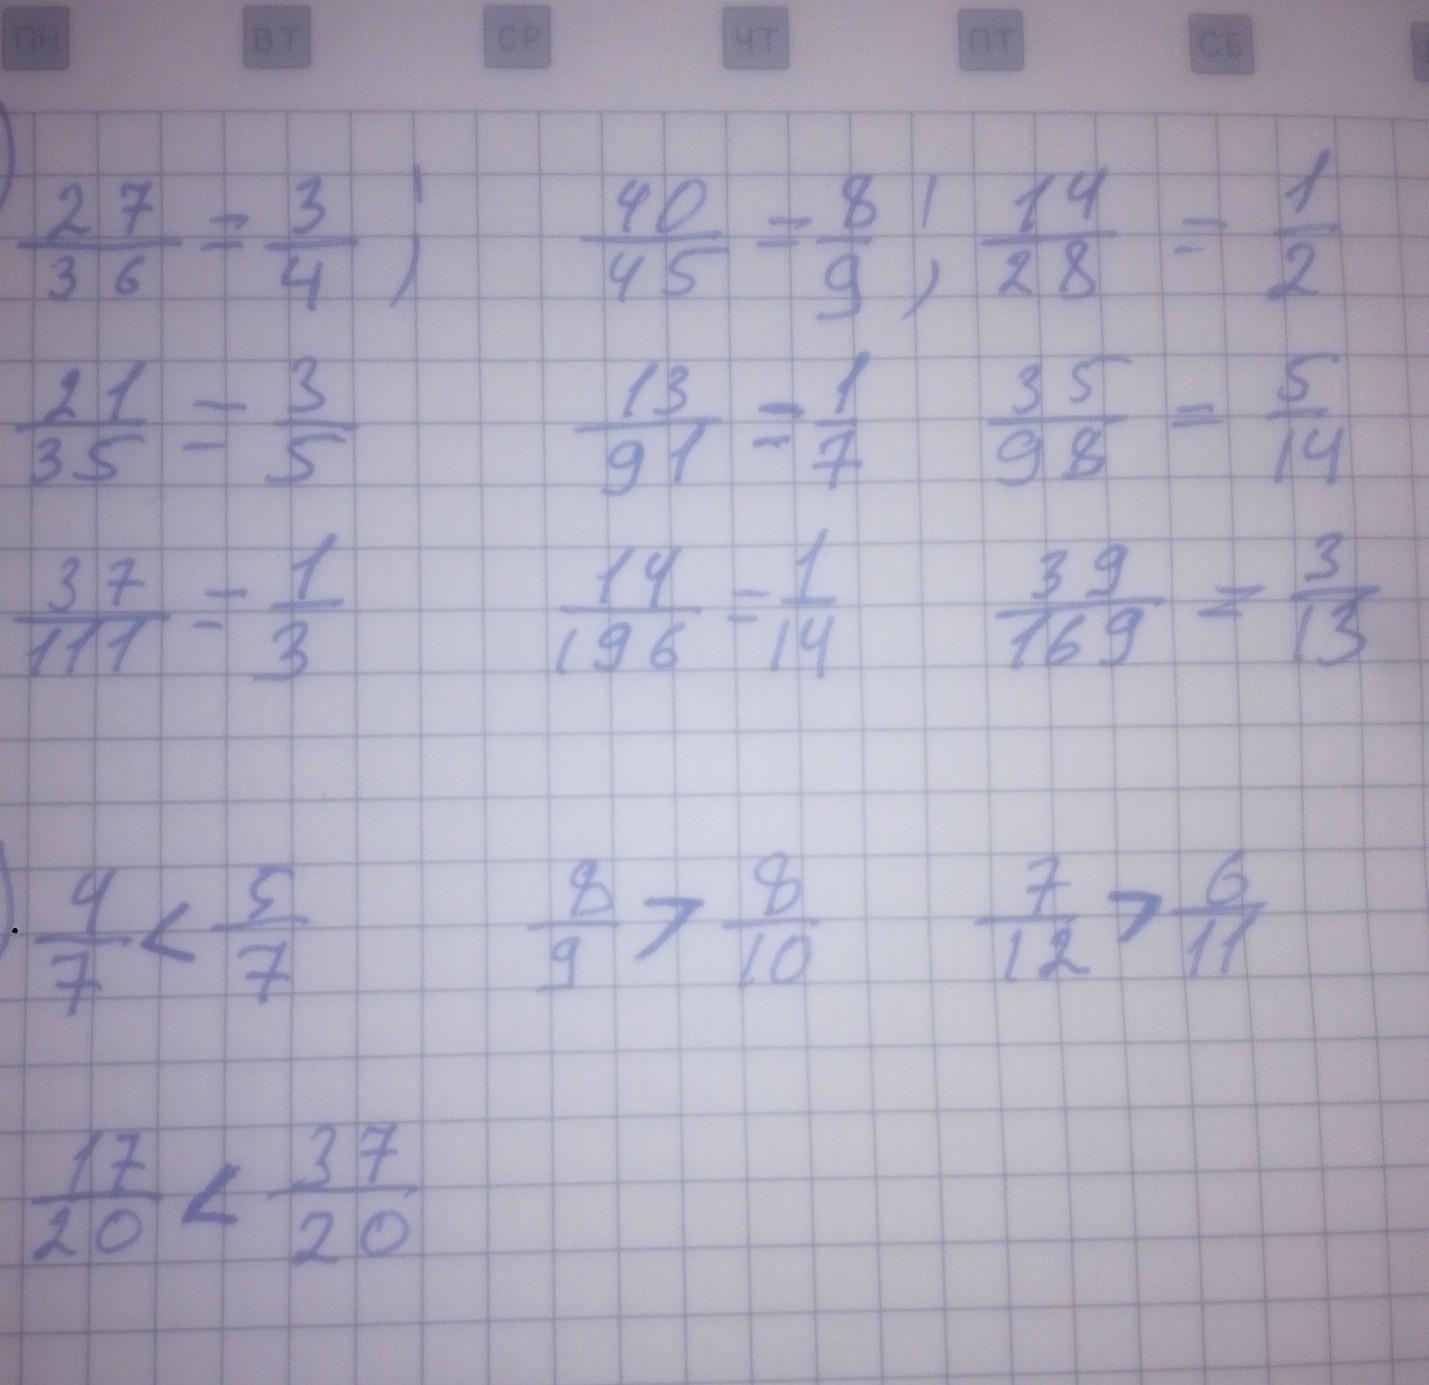 ПН ВТ СР ЧТ ПТ СБ
27/36 = 3/4 ; 40/45 = 8/9 ; 14/28 = 1/2
21/35 = 3/5 13/91 = 1/7 35/98 = 5/14
37/111 = 1/3 14/196 = 1/14 39/169 = 3/13
4/7 < 5/7 8/9 > 8/10 7/12 > 6/11
17/20 < 37/20